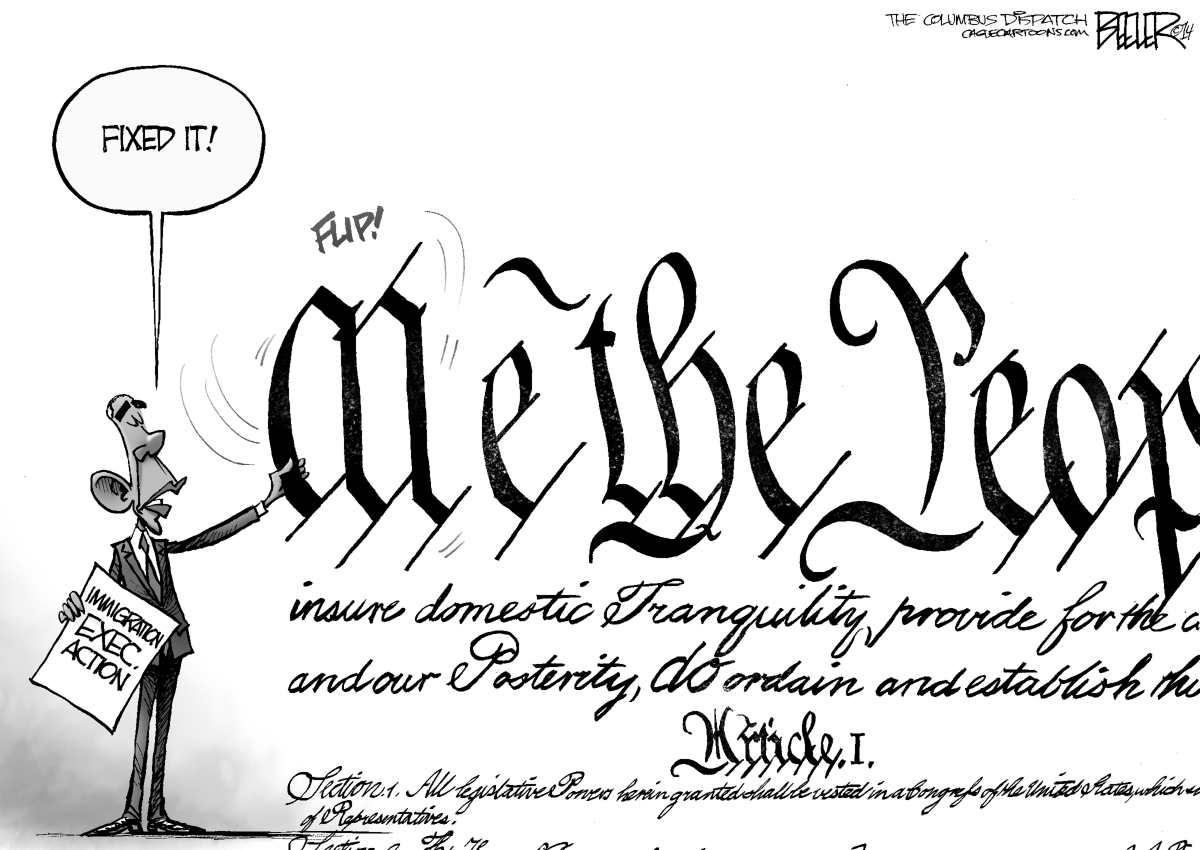 THE COLUMBUS DISPATCH
CAGLECARTOONS.COM
BEELER ©14
FIXED IT!
FLIP!
Me the Peop
insure domestic Tranquility, provide for the c
and our Posterity, do ordain and establish thi
Article. I.
Section. 1. All legislative Powers herein granted shall be vested in a Congress of the United States, which s
of Representatives.
IMMIGRATION
EXEC.
ACTION